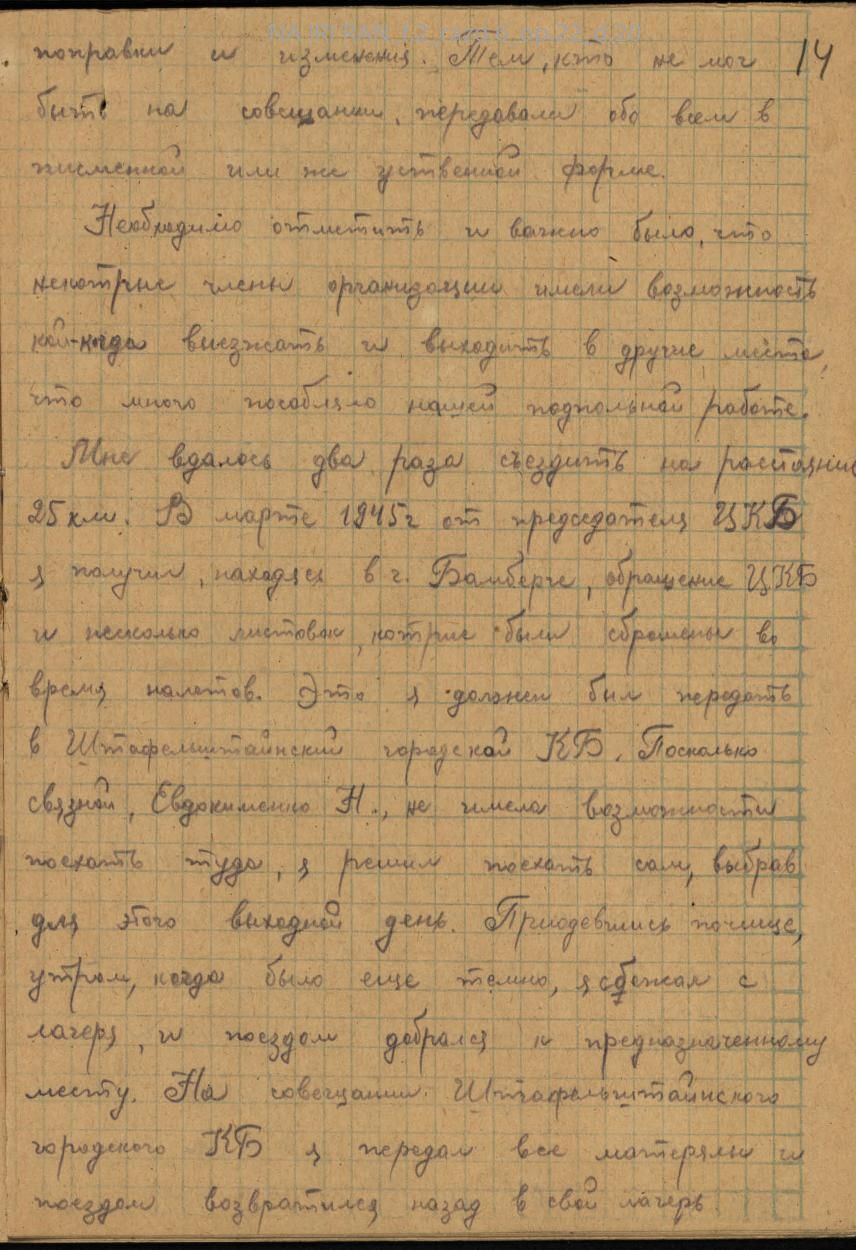 14
поправки и изменения. Тем, кто не мог
быть на совещании, передавали обо всем в
писменной или же уственной форме.
Необходимо отметить и важно было, что
некотрые члены организации имели возможность
кой-когда выезжать и выходить в другие места,
что много пособляло нашей подпольной работе.
Мне вдалось два раза съездить на растояние
25 км. В марте 1945 г от председателя ЦКБ
я получил, находясь в г. Бамберге, обращение ЦКБ
и несколько листовок, котрые были сброшены во
время налетов. Это я должен был передать
в Штафельштайнский городской КБ. Посколько
связной, Евдокименко Н., не имела возможности
поехать туда, я решил поехать сам, выбрав
для этого выходной день. Приодевшись почище,
утром, когда было еще темно, я сбежал с
лагеря, и поездом добрался к предназначенному
месту. На совещании Штафельштайнского
городского КБ я передал все матерялы и
поездом возвратился назад в свой лагерь